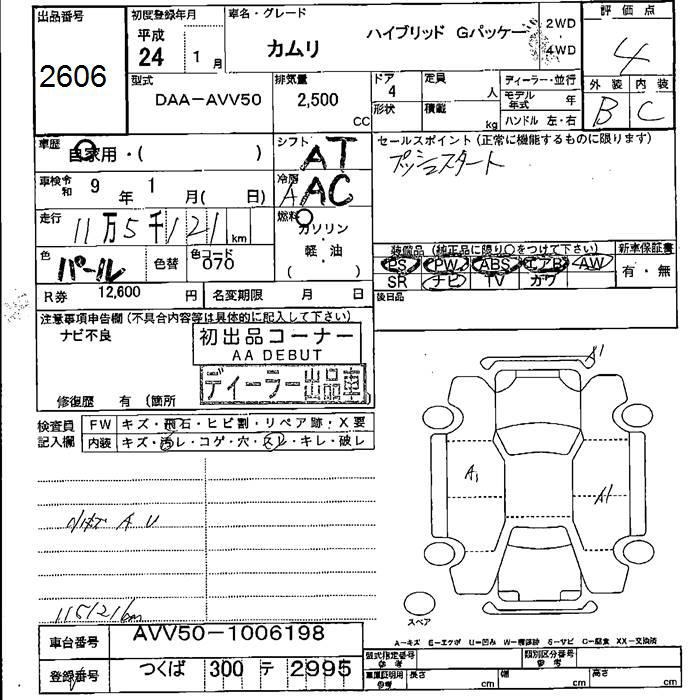 出品番号 2606
初度登録年月 平成 24 1 月
車名・グレード カムリ ハイブリッド Gパッケー
2WD ・ 4WD
評価点 4
型式 DAA-AVV50
排気量 2,500 CC
ドア 4 形状
定員 人
積載 kg
ディーラー・並行
モデル年式 年
ハンドル 左・右
外装 B
内装 C
車歴 自家用・( )
シフト AT
セールスポイント (正常に機能するものに限ります)
プッシュスタート
車検 令和 9 年 1 月 ( 日)
冷房 A AC
走行 11万5千121 km
燃料 ガソリン ・ 軽・油 ( )
色 パール 色替 色コード 070
装備品 (純正品に限り○をつけて下さい) 新車保証書
PS PW ABS エアB AW 有・無
SR ナビ TV カワ
後日品
R券 12,600 円 名変期限 月 日
注意事項申告欄 (不具合内容等は具体的に記入して下さい)
ナビ不良
初出品コーナー
AA DEBUT
ディーラー出品車
修復歴 有 (箇所
検査員記入欄
FW キズ・飛石・ヒビ割・リペア跡・X要
内装 キズ・汚レ・コゲ・穴・スレ・キレ・破レ
A1
A1
A1
A U
115121km
スペア
A-キズ E-エクボ U-凹み W-補修跡 S-サビ C-腐食 XX-交換済
車台番号 AVV50-1006198
登録番号 つくば 300 テ 2995
型式指定番号 参考
類別区分番号 参考
車庫証明用 参考 長さ cm 幅 cm 高さ cm